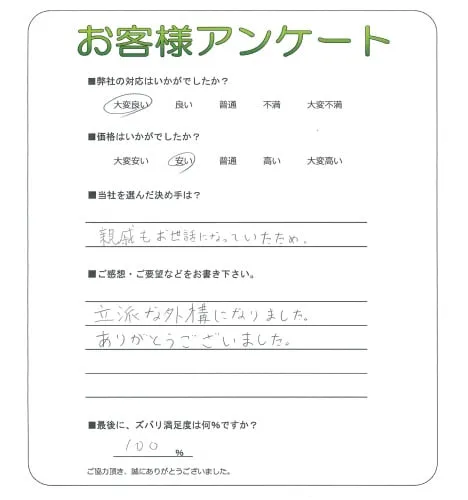 お客様アンケート
■弊社の対応はいかがでしたか？
大変良い 良い 普通 不満 大変不満
■価格はいかがでしたか？
大変安い 安い 普通 高い 大変高い
■当社を選んだ決め手は？
親戚もお世話になっていたため。
■ご感想・ご要望などをお書き下さい。
立派な外構になりました。
ありがとうございました。
■最後に、ズバリ満足度は何％ですか？
100 ％
ご協力頂き、誠にありがとうございました。